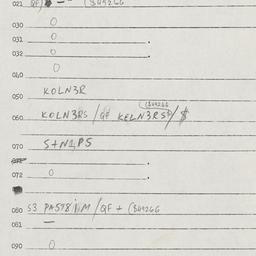 021 QF) — — (SH9266
030 0
031 0 .
032 0 .
0
040
050 KOLN3R
(SH9266
060 KOLN3RS / QF KELN3RSD / $
070 S+N1,PS
071
072 0 .
080 S3 PA578 NM / QF + (SH9266
081 —
090 0